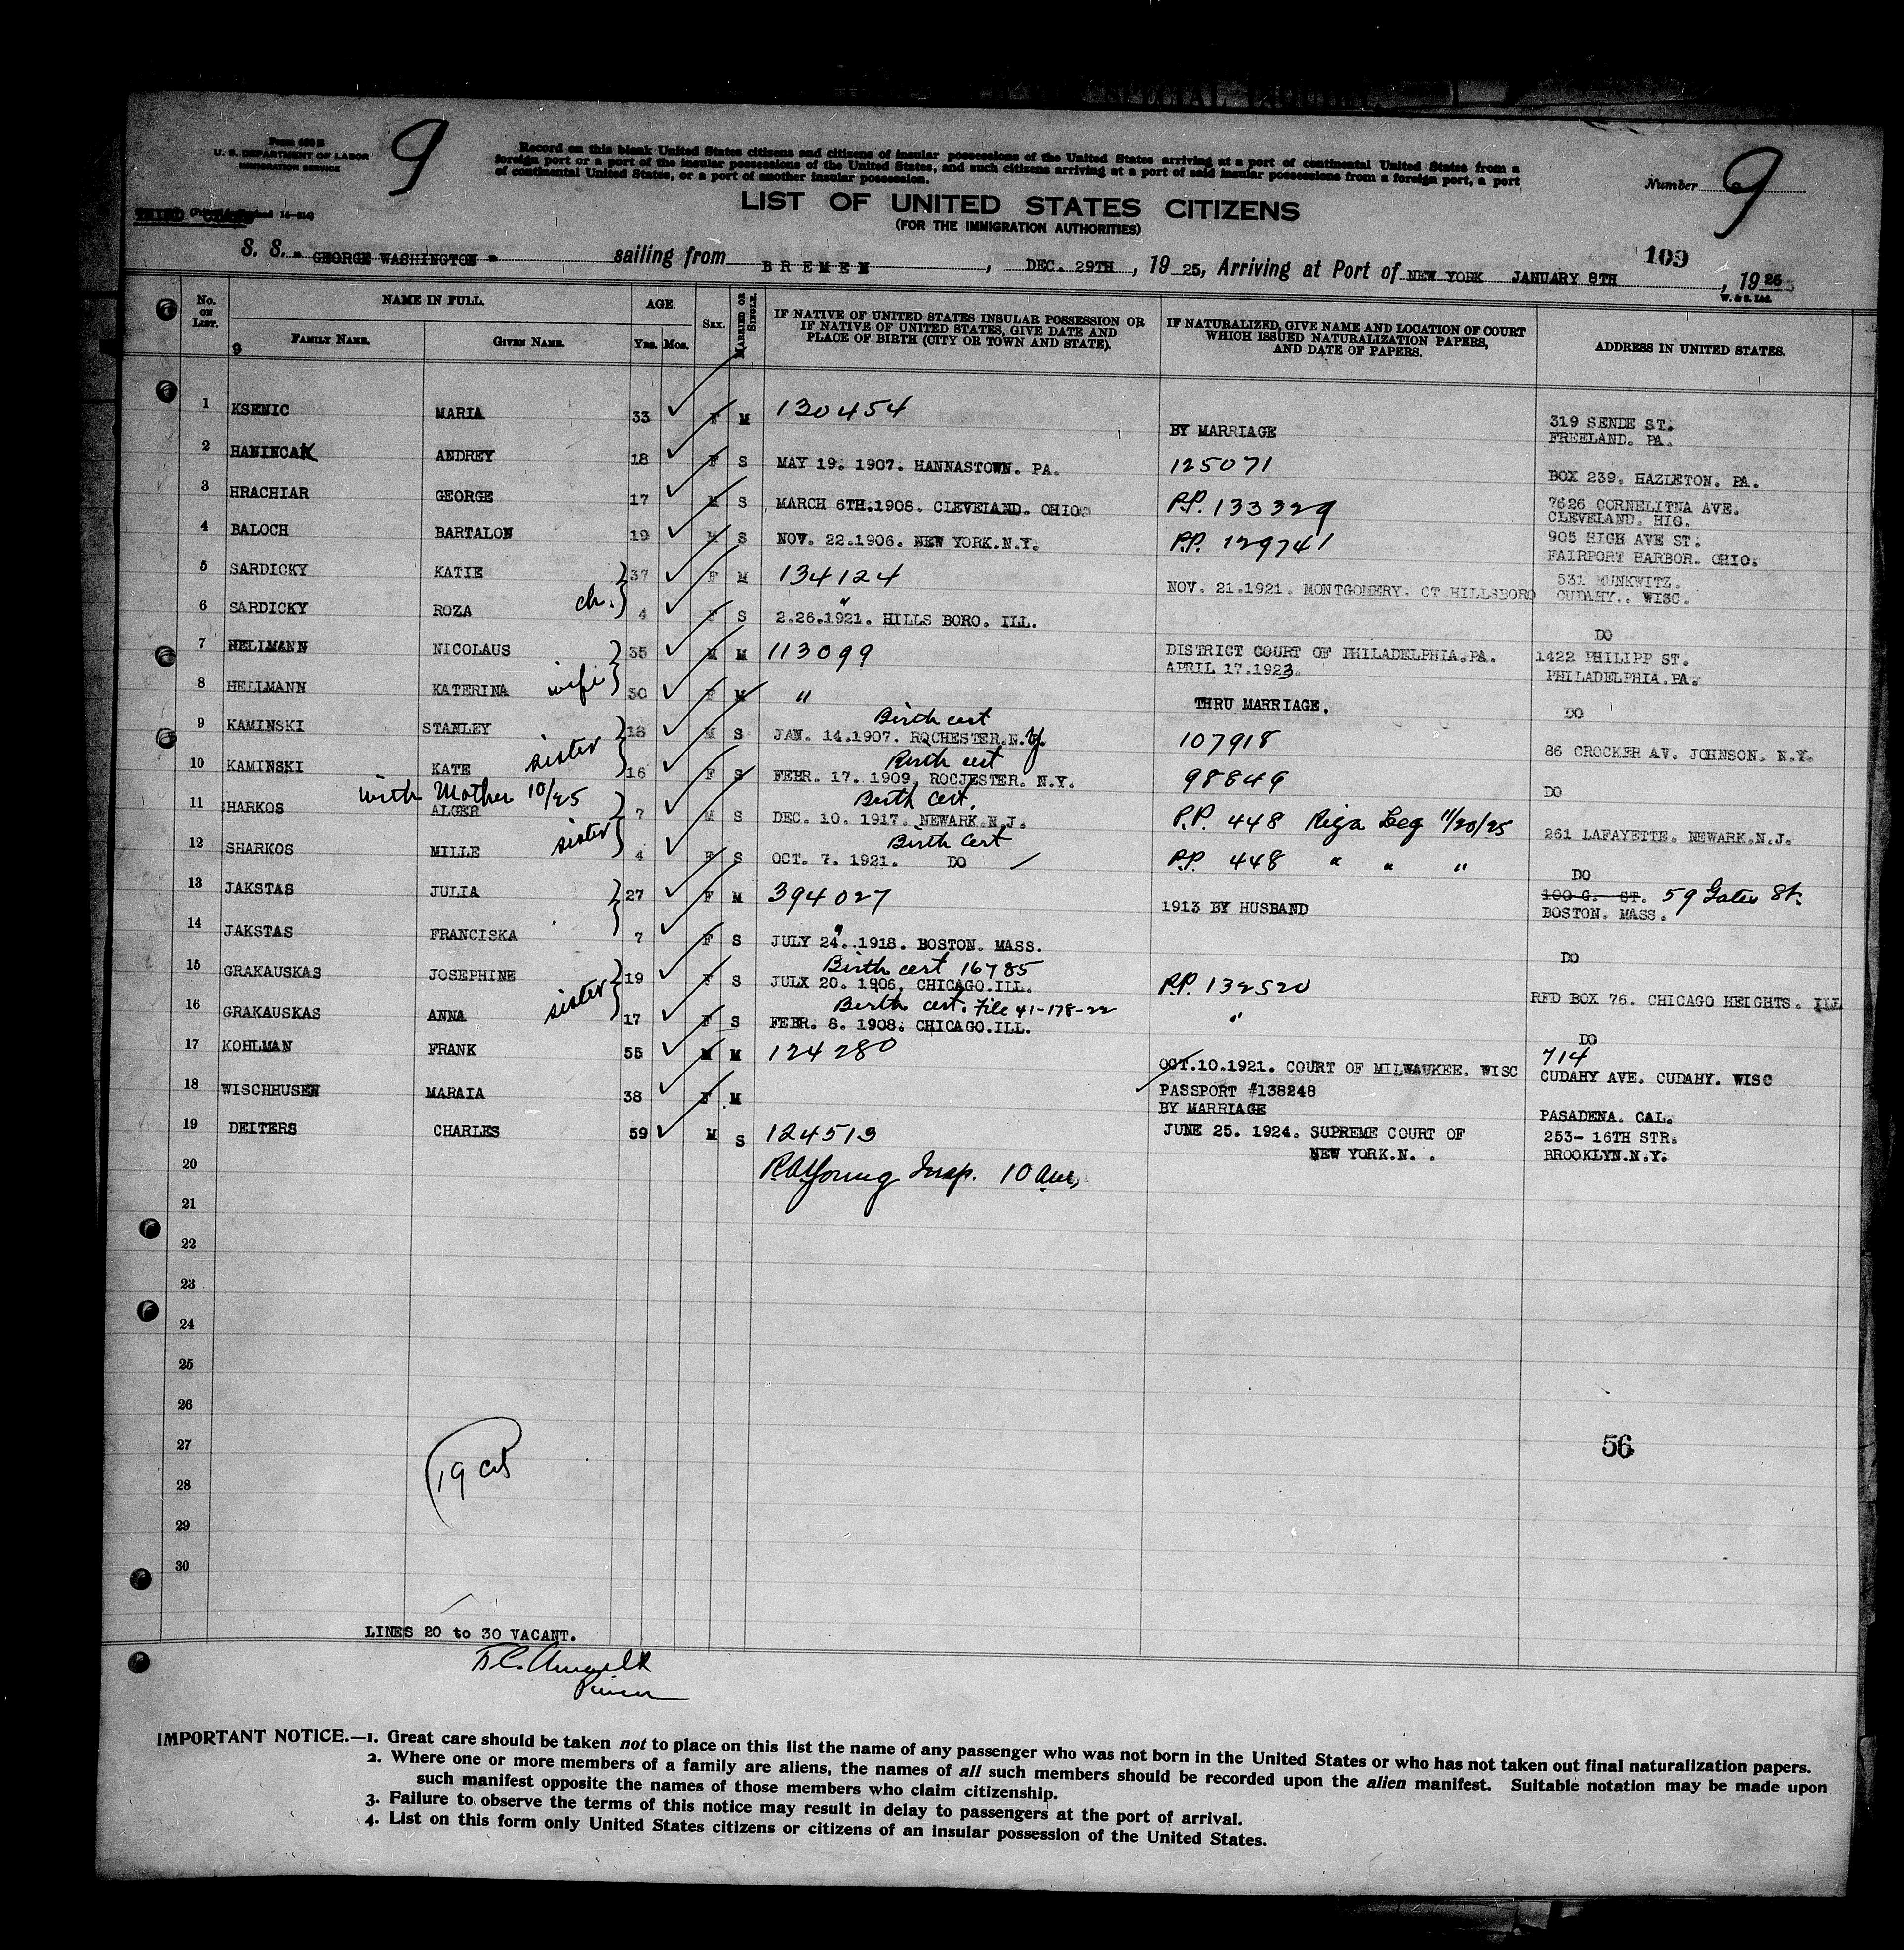 Form 630 B
U. S. DEPARTMENT OF LABOR
IMMIGRATION SERVICE
9
Record on this blank United States citizens and citizens of insular possessions of the United States arriving at a port of continental United States from a
foreign port or a port of the insular possessions of the United States, and such citizens arriving at a port of said insular possessions from a foreign port, a port
of continental United States, or a port of another insular possession.
Number 9
THIRD
LIST OF UNITED STATES CITIZENS
(FOR THE IMMIGRATION AUTHORITIES)
109
S. S. " GEORGE WASHINGTON " sailing from BREMEN, DEC. 29TH, 1925, Arriving at Port of NEW YORK JANUARY 8TH, 1926
No. ON LIST. NAME IN FULL. AGE. SEX. MARRIED OR SINGLE. IF NATIVE OF UNITED STATES INSULAR POSSESSION OR IF NATIVE OF UNITED STATES, GIVE DATE AND PLACE OF BIRTH (CITY OR TOWN AND STATE). IF NATURALIZED, GIVE NAME AND LOCATION OF COURT WHICH ISSUED NATURALIZATION PAPERS, AND DATE OF PAPERS. ADDRESS IN UNITED STATES.
9 FAMILY NAME. GIVEN NAME. YRS. MOS.
1 KSENIC MARIA 33 F M 130454 BY MARRIAGE 319 SENDE ST. FREELAND. PA.
2 HANINCAK ANDREY 18 F S MAY 19. 1907. HANNASTOWN. PA. 125071 BOX 239. HAZLETON. PA.
3 HRACHIAR GEORGE 17 M S MARCH 6TH.1908. CLEVELAND. OHIO. P.P. 133329 7626 CORNELITNA AVE. CLEVELAND. HIO.
4 BALOCH BARTALON 19 M S NOV. 22.1906. NEW YORK.N.Y. P.P. 129741 905 HIGH AVE ST. FAIRPORT HARBOR. OHIO.
5 SARDICKY KATIE 37 F M 134124 NOV. 21.1921. MONTGOMERY. CT HILLSBORO 531 MUNKWITZ. CUDAHY.. WISC.
6 SARDICKY ROZA ch. 4 F S " 2.26.1921. HILLS BORO. ILL. DO
7 HELLMANN NICOLAUS 35 M M 113099 DISTRICT COURT OF PHILADELPHIA.PA. APRIL 17.1923. 1422 PHILIPP ST. PHILADELPHIA.PA.
8 HELLMANN KATERINA wife 30 F M " THRU MARRIAGE. DO
9 KAMINSKI STANLEY 18 M S Birth cert JAN. 14.1907. ROCHESTER.N.Y. 107918 86 CROCKER AV. JOHNSON. N.Y.
10 KAMINSKI KATE sister 16 F S Birth cert FEBR. 17. 1909. ROCJESTER. N.Y. 98849 DO
with Mother 10/25
11 SHARKOS ALGER 7 M S Birth Cert. DEC. 10. 1917. NEWARK.N.J. P.P. 448 Riga Leg 11/20/25 261 LAFAYETTE. NEWARK.N.J.
12 SHARKOS MILLE sister 4 F S Birth Cert OCT. 7. 1921. DO P.P. 448 " " " DO
13 JAKSTAS JULIA 27 F M 394027 1913 BY HUSBAND 100 G. ST. 59 Gates St. BOSTON. MASS.
14 JAKSTAS FRANCISKA 7 F S " JULY 24. 1918. BOSTON. MASS. DO
15 GRAKAUSKAS JOSEPHINE 19 F S Birth cert 16785 JULX 20. 1906. CHICAGO.ILL. P.P. 132520 RFD BOX 76. CHICAGO HEIGHTS. ILL
16 GRAKAUSKAS ANNA sister 17 F S Birth cert. File 41-178-22 FEBR. 8. 1908. CHICAGO.ILL. " DO
17 KOHLMAN FRANK 55 M M 124280 OCT.10.1921. COURT OF MILWAUKEE. WISC 714 CUDAHY AVE. CUDAHY. WISC
18 WISCHHUSEN MARAIA 38 F M PASSPORT #138248 BY MARRIAGE PASADENA. CAL.
19 DEITERS CHARLES 59 M S 124513 JUNE 25. 1924. SUPREME COURT OF NEW YORK.N. . 253- 16TH STR. BROOKLYN.N.Y.
20 R.A.Young Insp. 10 am
21
22
23
24
25
26
27 56
28 19
29
30
LINES 20 to 30 VACANT.
IMPORTANT NOTICE.—1. Great care should be taken not to place on this list the name of any passenger who was not born in the United States or who has not taken out final naturalization papers.
2. Where one or more members of a family are aliens, the names of all such members should be recorded upon the alien manifest. Suitable notation may be made upon
such manifest opposite the names of those members who claim citizenship.
3. Failure to observe the terms of this notice may result in delay to passengers at the port of arrival.
4. List on this form only United States citizens or citizens of an insular possession of the United States.